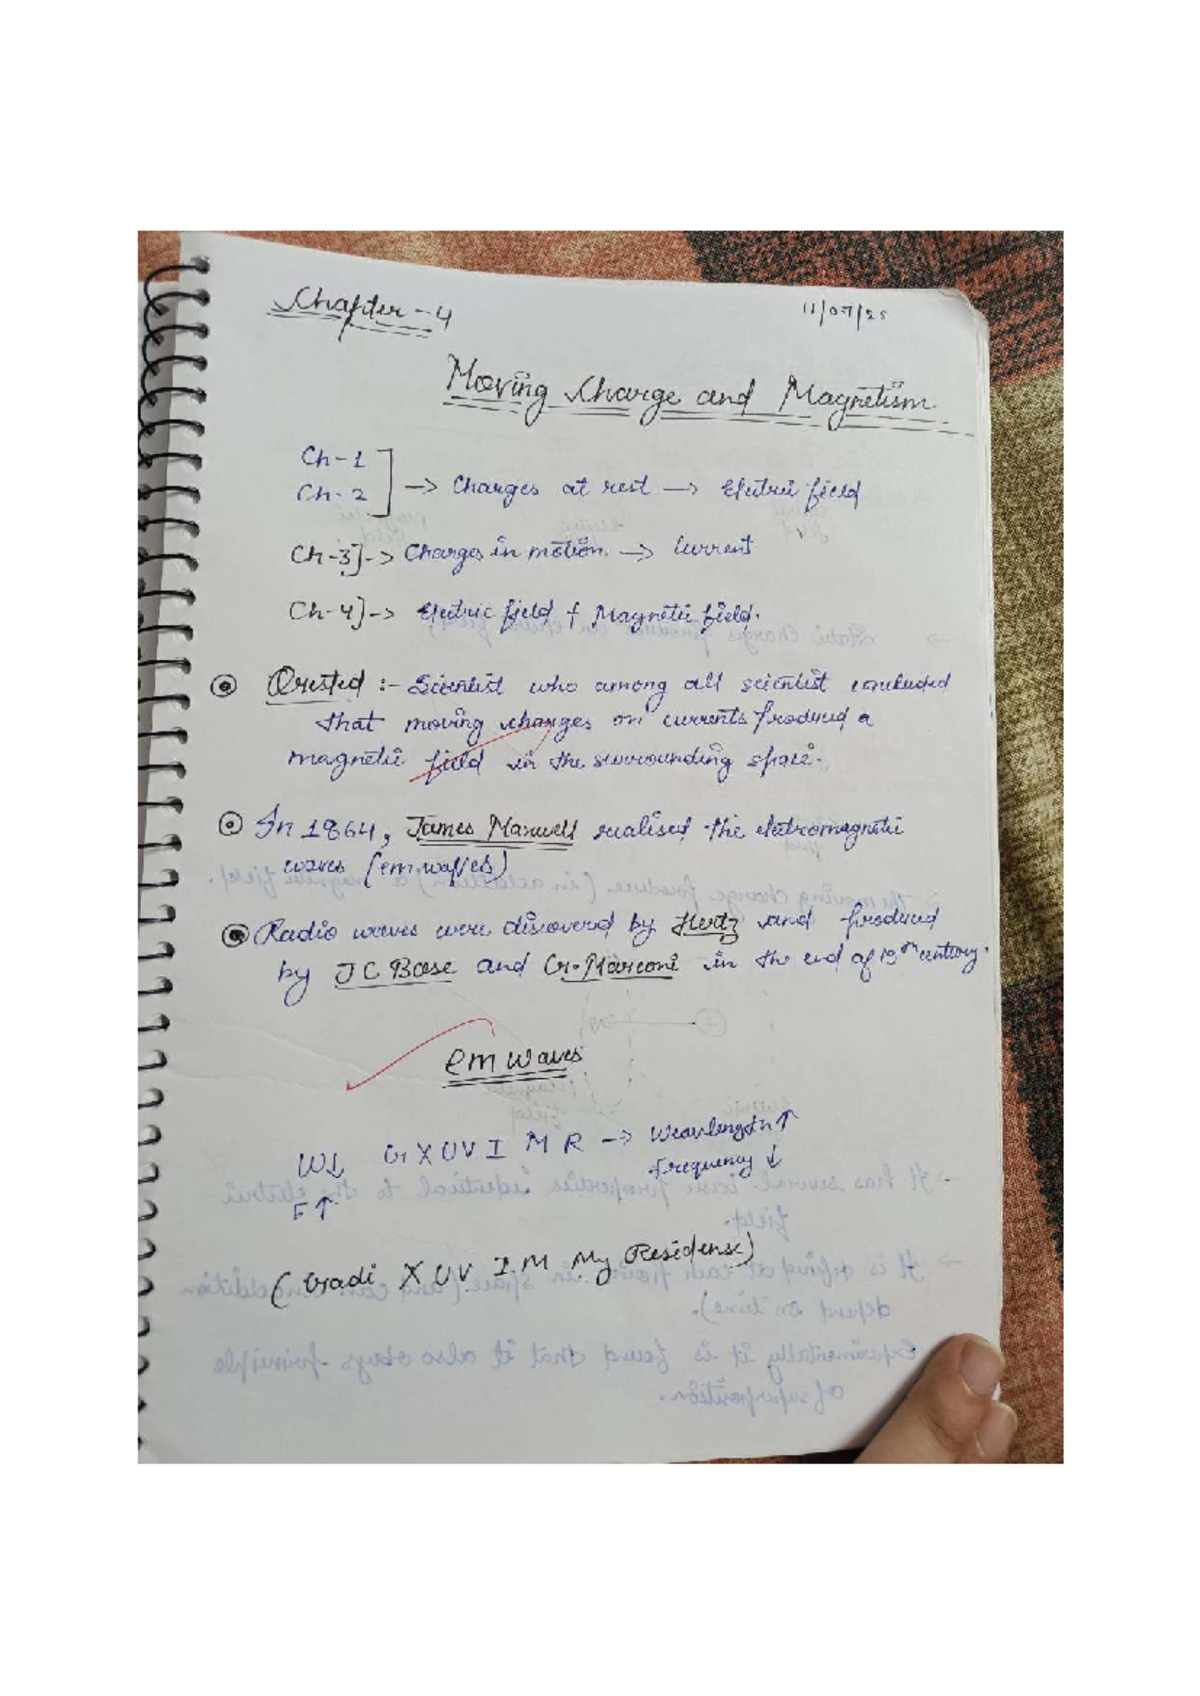 Chapter - 4
11/07/25
Moving Charge and Magnetism.
Ch-1
Ch-2 ] -> Charges at rest -> Electric field
Ch-3] -> Charges in motion -> Current
Ch-4] -> Electric field + Magnetic field.
Orested :- Scientist who among all scientist concluded
that moving charges or currents produced a
magnetic field in the surrounding space.
In 1864, James Maxwell realised the electromagnetic
waves (em waves)
Radio waves were discovered by Hertz and produced
by J C Bose and G. Marconi in the end of 19th century.
em waves
W↓ G X UV I M R -> Wavelength ↑
F↑ Frequency ↓
(Gadi X UV I M My Residense)